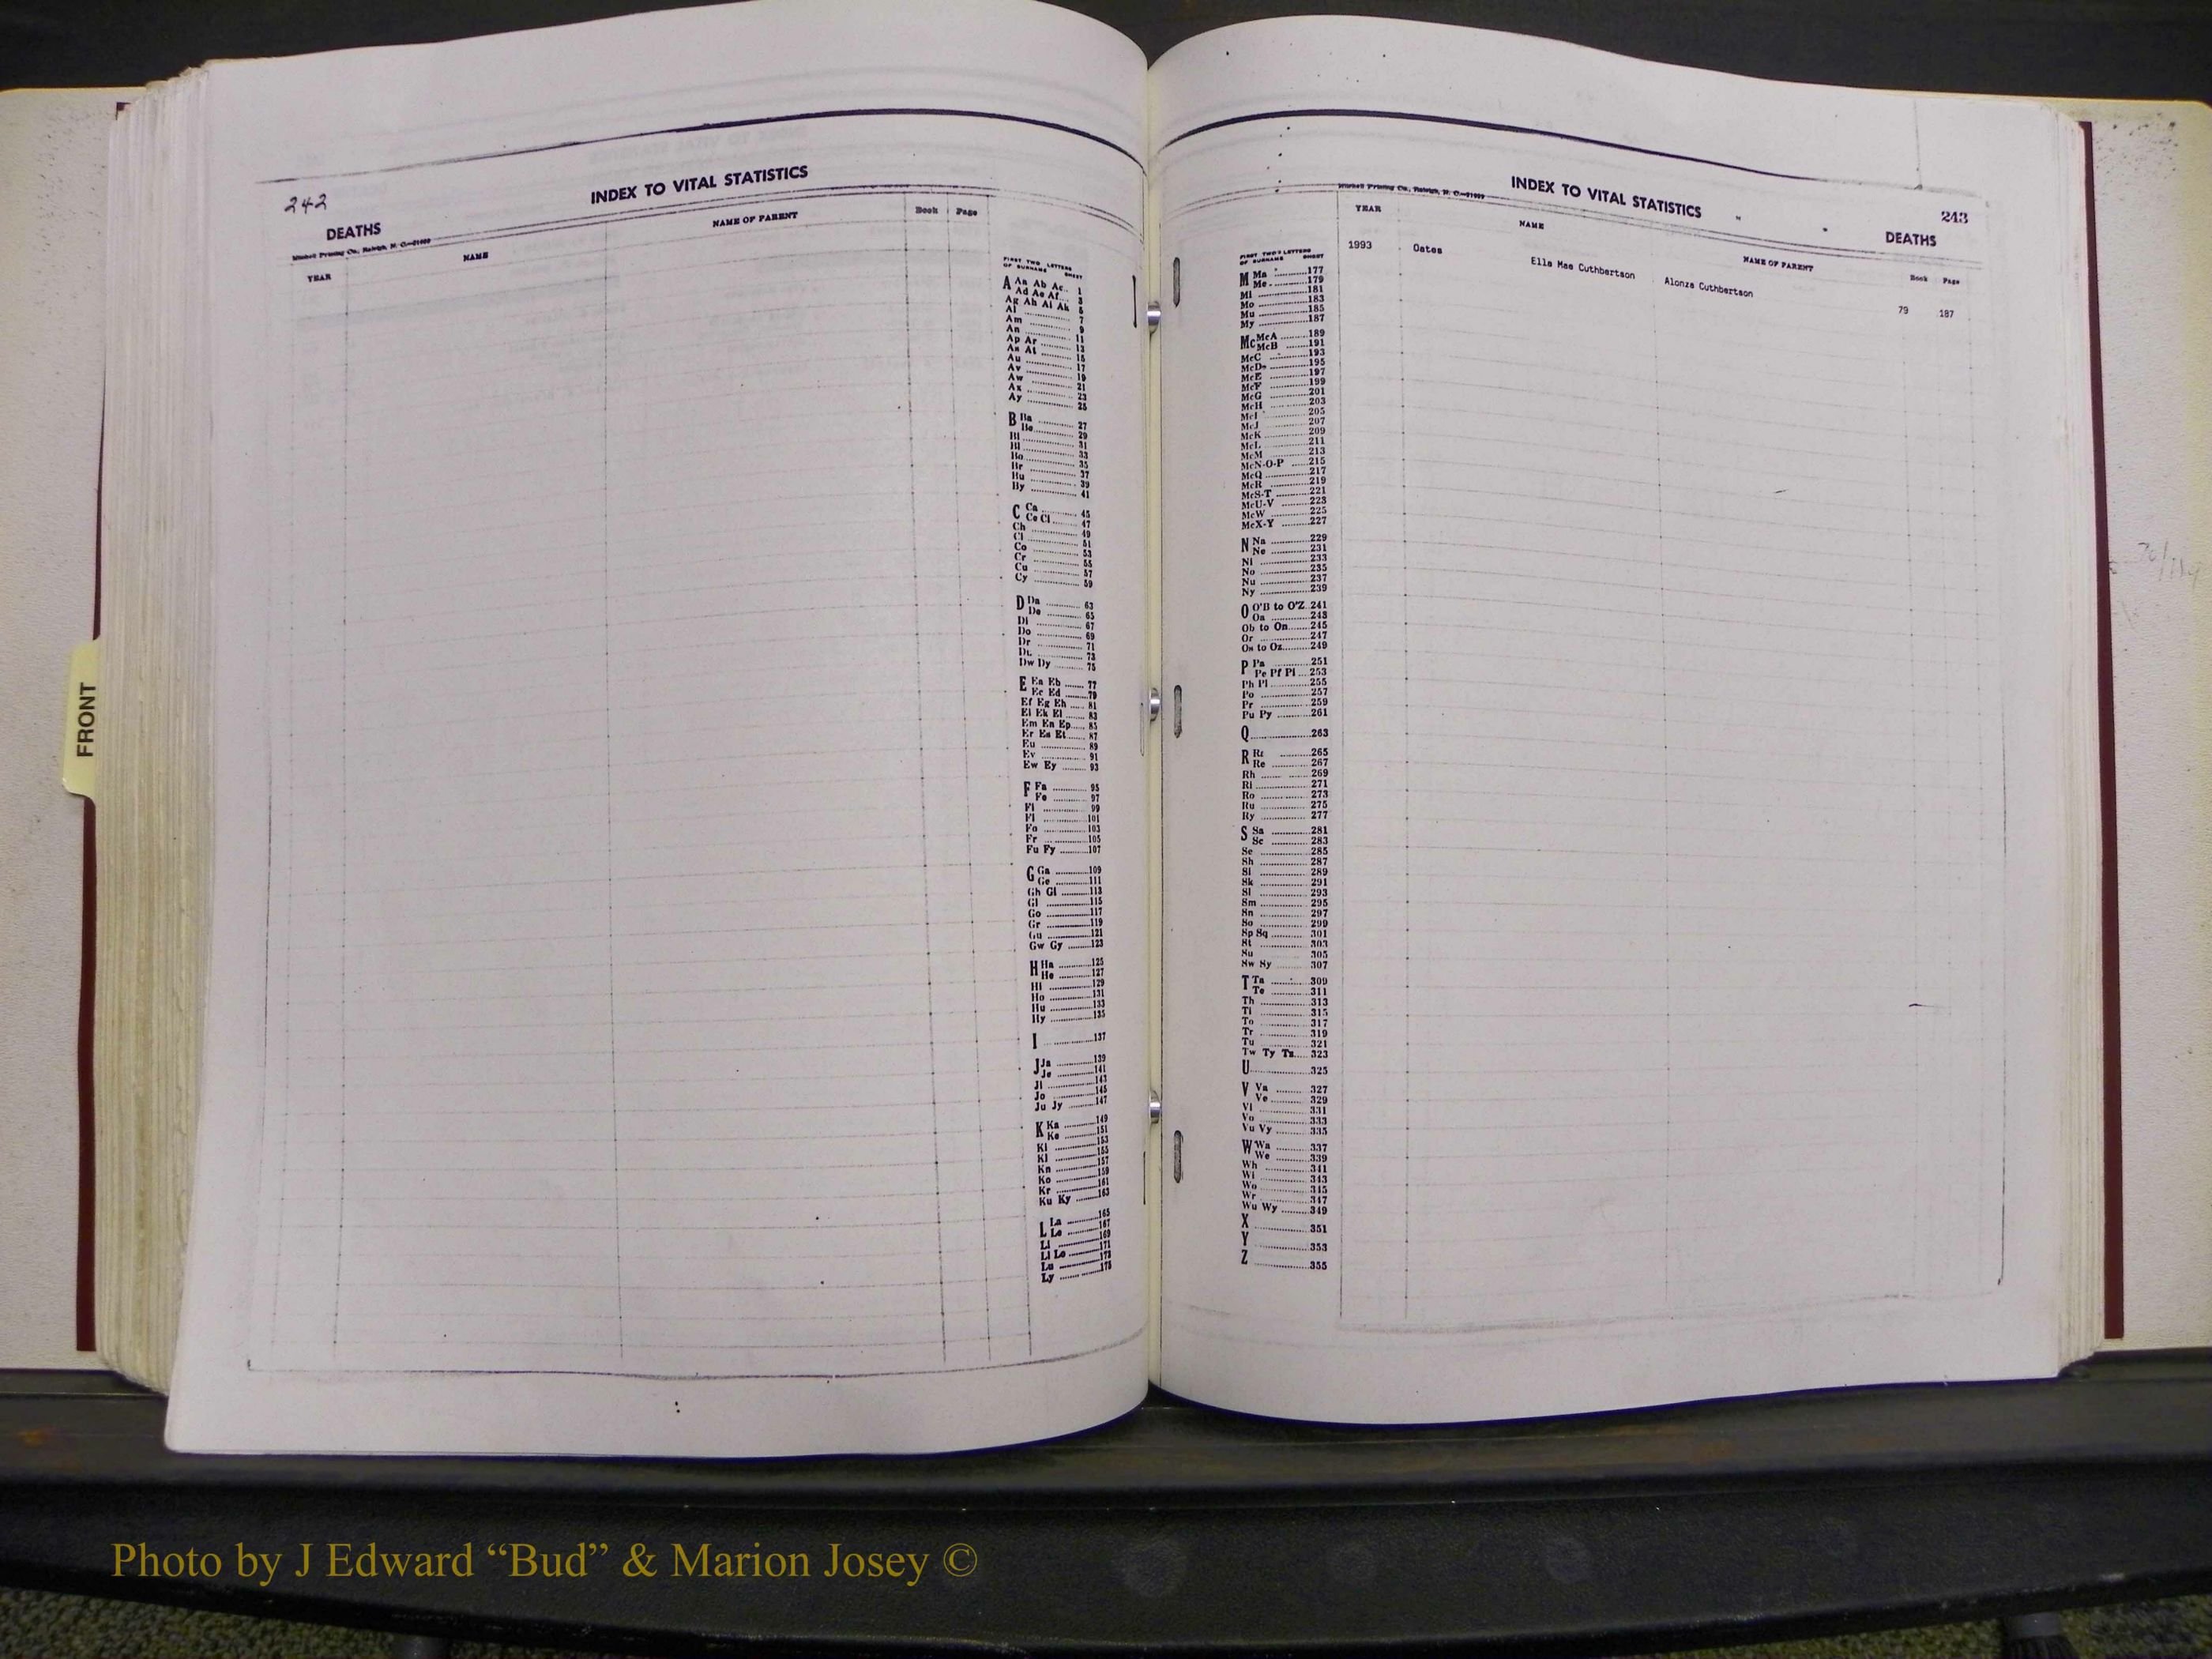 242
INDEX TO VITAL STATISTICS
DEATHS
Mitchell Printing Co., Raleigh, N. C.—
YEAR NAME NAME OF PARENT Book Page
FIRST TWO LETTERS
OF SURNAME SHEET
A Aa Ab Ac.. 1
Ad Ae Af... 3
Ag Ah Ai Ak 5
Al ............ 7
Am ............ 9
An ............ 11
Ap Ar ............ 13
As At ............ 15
Au ............ 17
Av ............ 19
Aw ............ 21
Ax ............ 23
Ay ............ 25
B Ba ............ 27
Be ............ 29
Bi ............ 31
Bl ............ 33
Bo ............ 35
Br ............ 37
Bu ............ 39
By ............ 41
C Ca ............ 45
Ce Ci ............ 47
Ch ............ 49
Cl ............ 51
Co ............ 53
Cr ............ 55
Cu ............ 57
Cy ............ 59
D Da ............ 63
De ............ 65
Di ............ 67
Do ............ 69
Dr ............ 71
Du ............ 73
Dw Dy ............ 75
E Ea Eb ........ 77
Ec Ed ........ 79
Ef Eg Eh ..... 81
Ei Ek El ....... 83
Em En Ep..... 85
Er Es Et....... 87
Eu ............ 89
Ev ............ 91
Ew Ey ........ 93
F Fa ............ 95
Fe ............ 97
Fi ............ 99
Fl ............ 101
Fo ............ 103
Fr ............ 105
Fu Fy ............ 107
G Ga ............ 109
Ge ............ 111
Gh Gi ............ 113
Gl ............ 115
Go ............ 117
Gr ............ 119
Gu ............ 121
Gw Gy ............ 123
H Ha ............ 125
He ............ 127
Hi ............ 129
Ho ............ 131
Hu ............ 133
Hy ............ 135
I ............ 137
J Ja ............ 139
Je ............ 141
Ji ............ 143
Jo ............ 145
Ju Jy ............ 147
K Ka ............ 149
Ke ............ 151
Ki ............ 153
Kl ............ 155
Kn ............ 157
Ko ............ 159
Kr ............ 161
Ku Ky ............ 163
L La ............ 165
Le ............ 167
Li ............ 169
Ll Lo ............ 171
Lu ............ 173
Ly ............ 175
INDEX TO VITAL STATISTICS
243
DEATHS
Mitchell Printing Co., Raleigh, N. C.—
YEAR NAME NAME OF PARENT Book Page
1993 Oates Ella Mae Cuthbertson Alonza Cuthbertson 79 187
FIRST TWO LETTERS
OF SURNAME SHEET
M Ma ............ 177
Me ............ 179
Mi ............ 181
Mo ............ 183
Mu ............ 185
My ............ 187
Mc McA ............ 189
McB ............ 191
McC ............ 193
McD ............ 195
McE ............ 197
McF ............ 199
McG ............ 201
McH ............ 203
McI ............ 205
McJ ............ 207
McK ............ 209
McL ............ 211
McM ............ 213
McN-O-P ...... 215
McQ ............ 217
McR ............ 219
McS-T ............ 221
McU-V ............ 223
McW ............ 225
McX-Y ............ 227
N Na ............ 229
Ne ............ 231
Ni ............ 233
No ............ 235
Nu ............ 237
Ny ............ 239
O O'B to O'Z.. 241
Oa ............ 243
Ob to On....... 245
Or ............ 247
Os to Oz......... 249
P Pa ............ 251
Pe Pf Pl ... 253
Ph Pi ............ 255
Po ............ 257
Pr ............ 259
Pu Py ............ 261
Q ............ 263
R Ra ............ 265
Re ............ 267
Rh ............ 269
Ri ............ 271
Ro ............ 273
Ru ............ 275
Ry ............ 277
S Sa ............ 281
Sc ............ 283
Se ............ 285
Sh ............ 287
Si ............ 289
Sk ............ 291
Sl ............ 293
Sm ............ 295
Sn ............ 297
So ............ 299
Sp Sq ............ 301
St ............ 303
Su ............ 305
Sw Sy ............ 307
T Ta ............ 309
Te ............ 311
Th ............ 313
Ti ............ 315
To ............ 317
Tr ............ 319
Tu ............ 321
Tw Ty Tz..... 323
U ............ 325
V Va ............ 327
Ve ............ 329
Vi ............ 331
Vo ............ 333
Vu Vy ............ 335
W Wa ............ 337
We ............ 339
Wh ............ 341
Wi ............ 343
Wo ............ 345
Wr ............ 347
Wu Wy ............ 349
X ............ 351
Y ............ 353
Z ............ 355
FRONT
Photo by J Edward “Bud” & Marion Josey ©